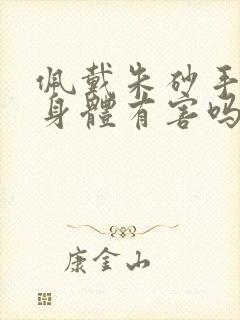 佩戴朱砂手
身體有害吗
康金山